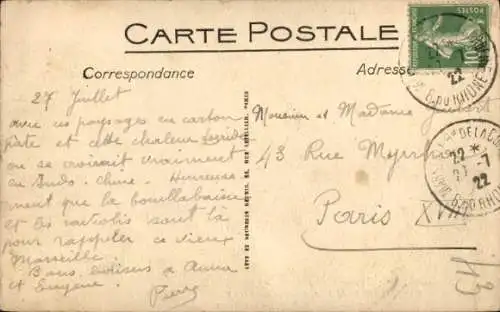 CARTE POSTALE
Correspondance
Adresse
27 Juillet
avec ces paysages en carton
Pate et cette chaleur torride
on se croirait vraiment
en Indo-Chine. Heureuse
ment que la bouillabaisse
et les raviolis sont là
pour rappeler ce vieux
Marseille.
Bons baisers à Anna
et Eugène.
Pierre
Monsieur et Madame
43 Rue Myrrha
Paris
XVIII
POSTES
10
22
B. DU RHONE
22 *
7
22
B. DU RHONE